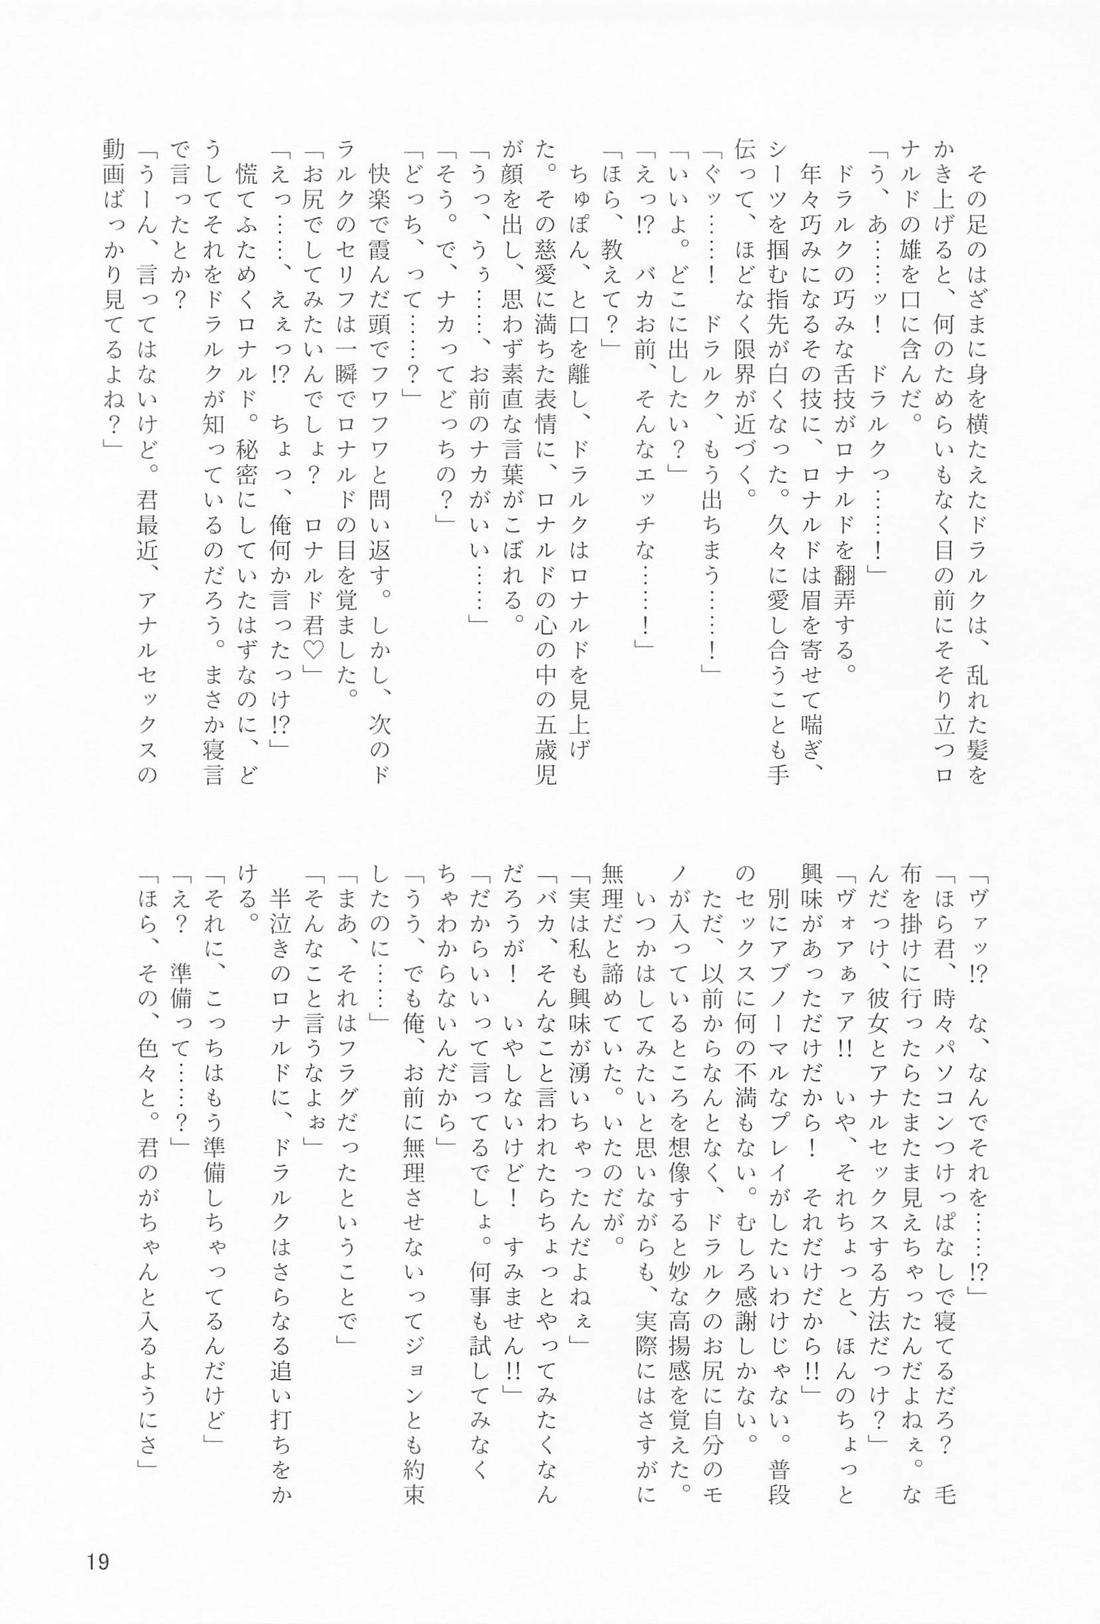 その足のはざまに身を横たえたドラルクは、乱れた髪を
かき上げると、何のためらいもなく目の前にそそり立つロ
ナルドの雄を口に含んだ。
「う、あ……ッ！　ドラルクっ……！」
　ドラルクの巧みな舌技がロナルドを翻弄する。
　年々巧みになるその技に、ロナルドは眉を寄せて喘ぎ、
シーツを掴む指先が白くなった。久々に愛し合うことも手
伝って、ほどなく限界が近づく。
「ぐッ……！　ドラルク、もう出ちまう……！」
「いいよ。どこに出したい？」
「えっ!?　バカお前、そんなエッチな……！」
「ほら、教えて？」
　ちゅぽん、と口を離し、ドラルクはロナルドを見上げ
た。その慈愛に満ちた表情に、ロナルドの心の中の五歳児
が顔を出し、思わず素直な言葉がこぼれる。
「うっ、うぅ……、お前のナカがいい……」
「そう。で、ナカってどっちの？」
「どっち、って……？」
　快楽で霞んだ頭でフワフワと問い返す。しかし、次のド
ラルクのセリフは一瞬でロナルドの目を覚ました。
「お尻でしてみたいんでしょ？　ロナルド君♡」
「えっ……、えぇっ!?　ちょっ、俺何か言ったっけ!?」
　慌てふためくロナルド。秘密にしていたはずなのに、ど
うしてそれをドラルクが知っているのだろう。まさか寝言
で言ったとか？
「うーん、言ってはないけど。君最近、アナルセックスの
動画ばっかり見てるよね？」
「ヴァッ!?　な、なんでそれを……!?」
「ほら君、時々パソコンつけっぱなしで寝てるだろ？　毛
布を掛けに行ったらたまたま見えちゃったんだよねぇ。な
んだっけ、彼女とアナルセックスする方法だっけ？」
「ヴォアぁァア!!　いや、それちょっと、ほんのちょっと
興味があっただけだから！　それだけだから!!」
　別にアブノーマルなプレイがしたいわけじゃない。普段
のセックスに何の不満もない。むしろ感謝しかない。
　ただ、以前からなんとなく、ドラルクのお尻に自分のモ
ノが入っているところを想像すると妙な高揚感を覚えた。
　いつかはしてみたいと思いながらも、実際にはさすがに
無理だと諦めていた。いたのだが。
「実は私も興味が湧いちゃったんだよねぇ」
「バカ、そんなこと言われたらちょっとやってみたくなん
だろうが！　いやしないけど！　すみません!!」
「だからいいって言ってるでしょ。何事も試してみなく
ちゃわからないんだから」
「うう、でも俺、お前に無理させないってジョンとも約束
したのに……」
「まあ、それはフラグだったということで」
「そんなこと言うなよぉ」
　半泣きのロナルドに、ドラルクはさらなる追い打ちをか
ける。
「それに、こっちはもう準備しちゃってるんだけど」
「え？　準備って……？」
「ほら、その、色々と。君のがちゃんと入るようにさ」
19